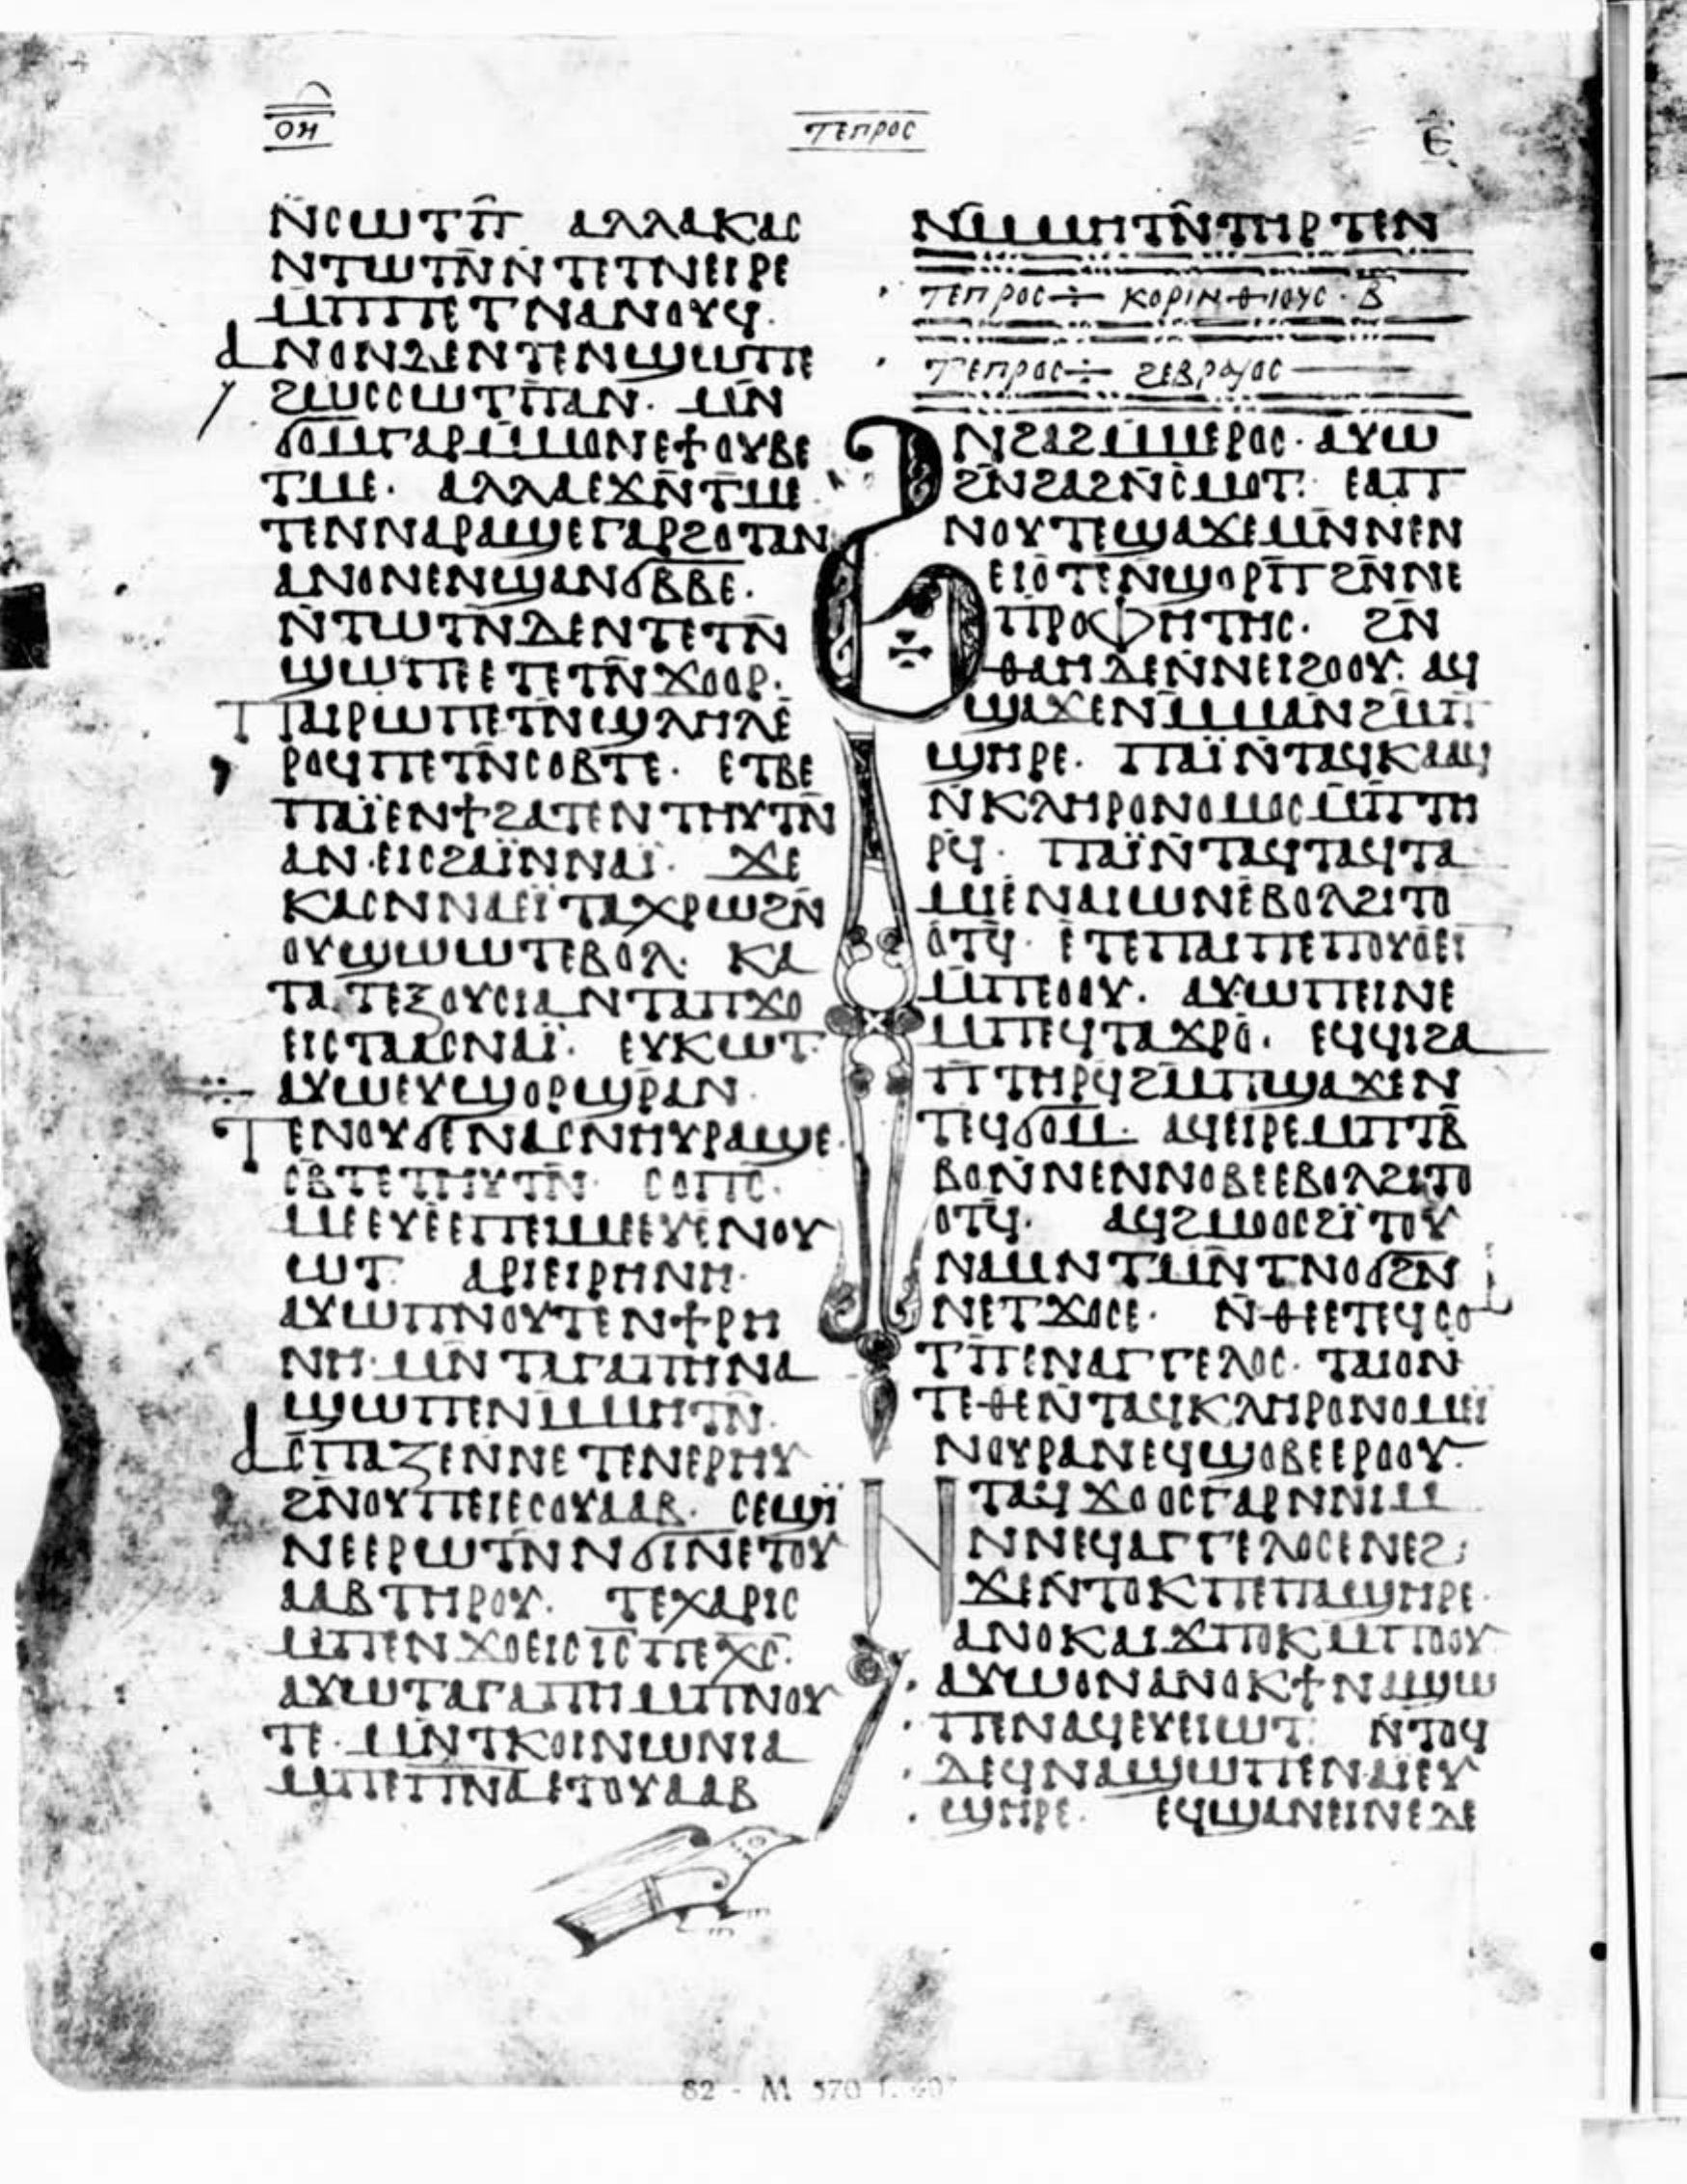 ⲟⲏ
ⲧⲉⲡⲣⲟⲥ
ⲉ
ⲛ̄ⲥⲱⲧⲡ̄ ⲁⲗⲗⲁⲕⲁⲥ
ⲛⲧⲱⲧⲛ̄ⲛⲧⲉⲧⲛⲉⲓⲣⲉ
ⲙ̄ⲡⲡⲉⲧⲛⲁⲛⲟⲩϥ.
ⲁⲛⲟⲛⲇⲉⲛⲧⲉⲛϣⲱⲡⲉ
ϩⲱⲥⲥⲱⲧⲡ̄ⲁⲛ. ⲙⲛ̄
ϭⲟⲙⲅⲁⲣⲙ̄ⲙⲟⲛⲉϯⲟⲩⲃⲉ
ⲧⲙⲉ. ⲁⲗⲗⲁⲉϫⲛ̄ⲧⲙⲉ
ⲧⲉⲛⲛⲁⲣⲁϣⲉⲅⲁⲣϩⲟⲧⲁⲛ
ⲁⲛⲟⲛⲉⲛϣⲁⲛϭⲃⲃⲉ.
ⲛ̄ⲧⲱⲧⲛ̄ⲇⲉⲛⲧⲉⲧⲛ̄
ϣⲱⲡⲉⲉⲧⲉⲧⲛ̄ϫⲟⲟⲣ.
ⲡⲁⲓⲣⲱⲡⲉⲧⲛ̄ϣⲗⲏⲗⲉ
ⲣⲟϥⲡⲉⲧⲛ̄ⲥⲟⲃⲧⲉ. ⲉⲧⲃⲉ
ⲡⲁⲓ̈ⲉⲛϯϩⲁⲧⲉⲛⲧⲏⲩⲧⲛ̄
ⲁⲛ.ⲉⲓⲥϩⲁⲓ̈ⲛⲛⲁⲓ̈. ϫⲉ
ⲕⲁⲥⲛⲛⲁⲉⲓ̈ⲧⲁⲭⲣⲱϩⲛ̄
ⲟⲩϣⲱⲱⲧⲉⲃⲟⲗ. ⲕⲁ
ⲧⲁ.ⲧⲉⲝⲟⲩⲥⲓⲁⲛⲧⲁⲡϫⲟ
ⲉⲓⲥⲧⲁⲁⲥⲛⲁⲓ̈. ⲉⲩⲕⲱⲧ.
ⲁⲩⲱⲉⲩϣⲟⲣϣⲣ̄ⲁⲛ.
ⲧⲉⲛⲟⲩϭⲉⲛⲁⲥⲛⲏⲩⲣⲁϣⲉ.
ⲥⲃⲧⲉⲧⲏⲩⲧⲛ̄. ⲥⲟⲡⲥ̄.
ⲙⲉⲉⲩⲉⲉⲡⲉⲓⲙⲉⲉⲩⲉⲛⲟⲩ
ⲱⲧ. ⲁⲣⲓⲉⲓⲣⲏⲛⲏ.
ⲁⲩⲱⲡⲛⲟⲩⲧⲉⲛϯⲣⲏ
ⲛⲏ.ⲙⲛ̄ⲧⲁⲅⲁⲡⲏⲛⲁ
ϣⲱⲡⲉⲛⲙ̄ⲙⲏⲧⲛ̄.
ⲁⲥⲡⲁⲍⲉⲛⲛⲉⲧⲉⲛⲉⲣⲏⲩ
ϩⲛⲟⲩⲡⲉⲓⲉⲥⲟⲩⲁⲁⲃ. ⲥⲉϣⲓ̈
ⲛⲉⲉⲣⲱⲧⲛ̄ⲛϭⲓⲛⲉⲧⲟⲩ
ⲁⲁⲃⲧⲏⲣⲟⲩ. ⲧⲉⲭⲁⲣⲓⲥ
ⲙⲡⲉⲛϫⲟⲉⲓⲥⲓ̄ⲥ̄ⲡⲉⲭ̄ⲥ̄.
ⲁⲩⲱⲧⲁⲅⲁⲡⲏⲙⲡⲛⲟⲩ
ⲧⲉ. ⲙⲛ̄ⲧⲕⲟⲓⲛⲱⲛⲓⲁ
ⲙⲡⲉⲡ̄ⲛ̄ⲁ̄ⲉⲧⲟⲩⲁⲁⲃ
ⲛⲙ̄ⲙⲏⲧⲛ̄ⲧⲏⲣⲧⲉⲛ
ⲧⲉⲡⲣⲟⲥ÷ ⲕⲟⲣⲓⲛⲑⲓⲟⲩⲥ. ⲃ̄
ⲧⲉⲡⲣⲟⲥ÷ ϩⲉⲃⲣⲁⲓⲟⲥ
ϩⲛϩⲁϩⲙ̄ⲙⲉⲣⲟⲥ. ⲁⲩⲱ
ϩⲛϩⲁϩⲛ̄ⲥⲙⲟⲧ. ⲉⲁⲡ
ⲛⲟⲩⲧⲉϣⲁϫⲉⲙⲛ̄ⲛⲉⲛ
ⲉⲓⲟⲧⲉⲛ̄ϣⲟⲣⲡ̄ϩⲛ̄ⲛⲉ
ⲡⲣⲟⲫⲏⲧⲏⲥ. ϩⲛ̄
ⲑⲁⲏⲇⲉⲛ̄ⲛⲉⲓϩⲟⲟⲩ. ⲁϥ
ϣⲁϫⲉⲛⲙ̄ⲙⲁⲛϩⲙ̄ⲡ
ϣⲏⲣⲉ. ⲡⲁⲓ̈ⲛ̄ⲧⲁϥⲕⲁⲁϥ
ⲛ̄ⲕⲗⲏⲣⲟⲛⲟⲙⲟⲥⲙ̄ⲡⲧⲏ
ⲣϥ̄. ⲡⲁⲓ̈ⲛ̄ⲧⲁϥⲧⲁϥⲧⲁ
ⲙⲓⲉⲛⲁⲓⲱⲛⲉⲃⲟⲗϩⲓⲧⲟ
ⲟⲧϥ̄. ⲉⲧⲉⲡⲁⲓⲡⲉⲡⲟⲩⲟⲉⲓ
ⲙ̄ⲡⲉⲟⲟⲩ. ⲁⲩⲱⲡⲉⲓⲛⲉ
ⲙⲡⲉϥⲧⲁϫⲣⲟ. ⲉϥϥⲓϩⲁ
ⲡⲧⲏⲣϥϩⲙ̄ⲡϣⲁϫⲉⲛ
ⲧⲉϥϭⲟⲙ. ⲁϥⲉⲓⲣⲉⲙⲡⲧⲃ̄
ⲃⲟⲛ̄ⲛⲉⲛⲛⲟⲃⲉⲉⲃⲟⲗϩⲓⲧⲟ
ⲟⲧϥ̄. ⲁϥϩⲙⲟⲟⲥϩⲓ̈ⲧⲟⲩ
ⲛⲁⲙⲛⲧⲙⲛ̄ⲧⲛⲟϭϩⲛ
ⲛⲉⲧϫⲟⲥⲉ. ⲛ̄ⲑⲉⲉⲧⲉϥⲥⲟ
ⲧⲡ̄ⲉⲛⲁⲅⲅⲉⲗⲟⲥ. ⲧⲁⲓⲟⲛ
ⲧⲉⲑⲉⲛ̄ⲧⲁϥⲕⲗⲏⲣⲟⲛⲟⲙⲉⲓ̈
ⲛⲟⲩⲣⲁⲛⲉϥϣⲟⲃⲉⲉⲣⲟⲟⲩ.
ⲛⲧⲁϥϫⲟⲟⲥⲅⲁⲣⲛⲛⲓⲙ
ⲛⲛⲉϥⲁⲅⲅⲉⲗⲟⲥⲉⲛⲉϩ:
ϫⲉⲛⲧⲟⲕⲡⲉⲡⲁϣⲏⲣⲉ.
ⲁⲛⲟⲕⲁⲓϫⲡⲟⲕⲙⲡⲟⲟⲩ
ⲁⲩⲱⲟⲛⲁⲛⲟⲕϯⲛⲁϣⲱ
ⲡⲉⲛⲁϥⲉⲩⲉⲓⲱⲧ. ⲛ̄ⲧⲟϥ
ⲇⲉϥⲛⲁϣⲱⲡⲉⲛⲁⲓⲉⲩ
ϣⲏⲣⲉ. ⲉϥϣⲁⲛⲉⲓⲛⲉⲇⲉ